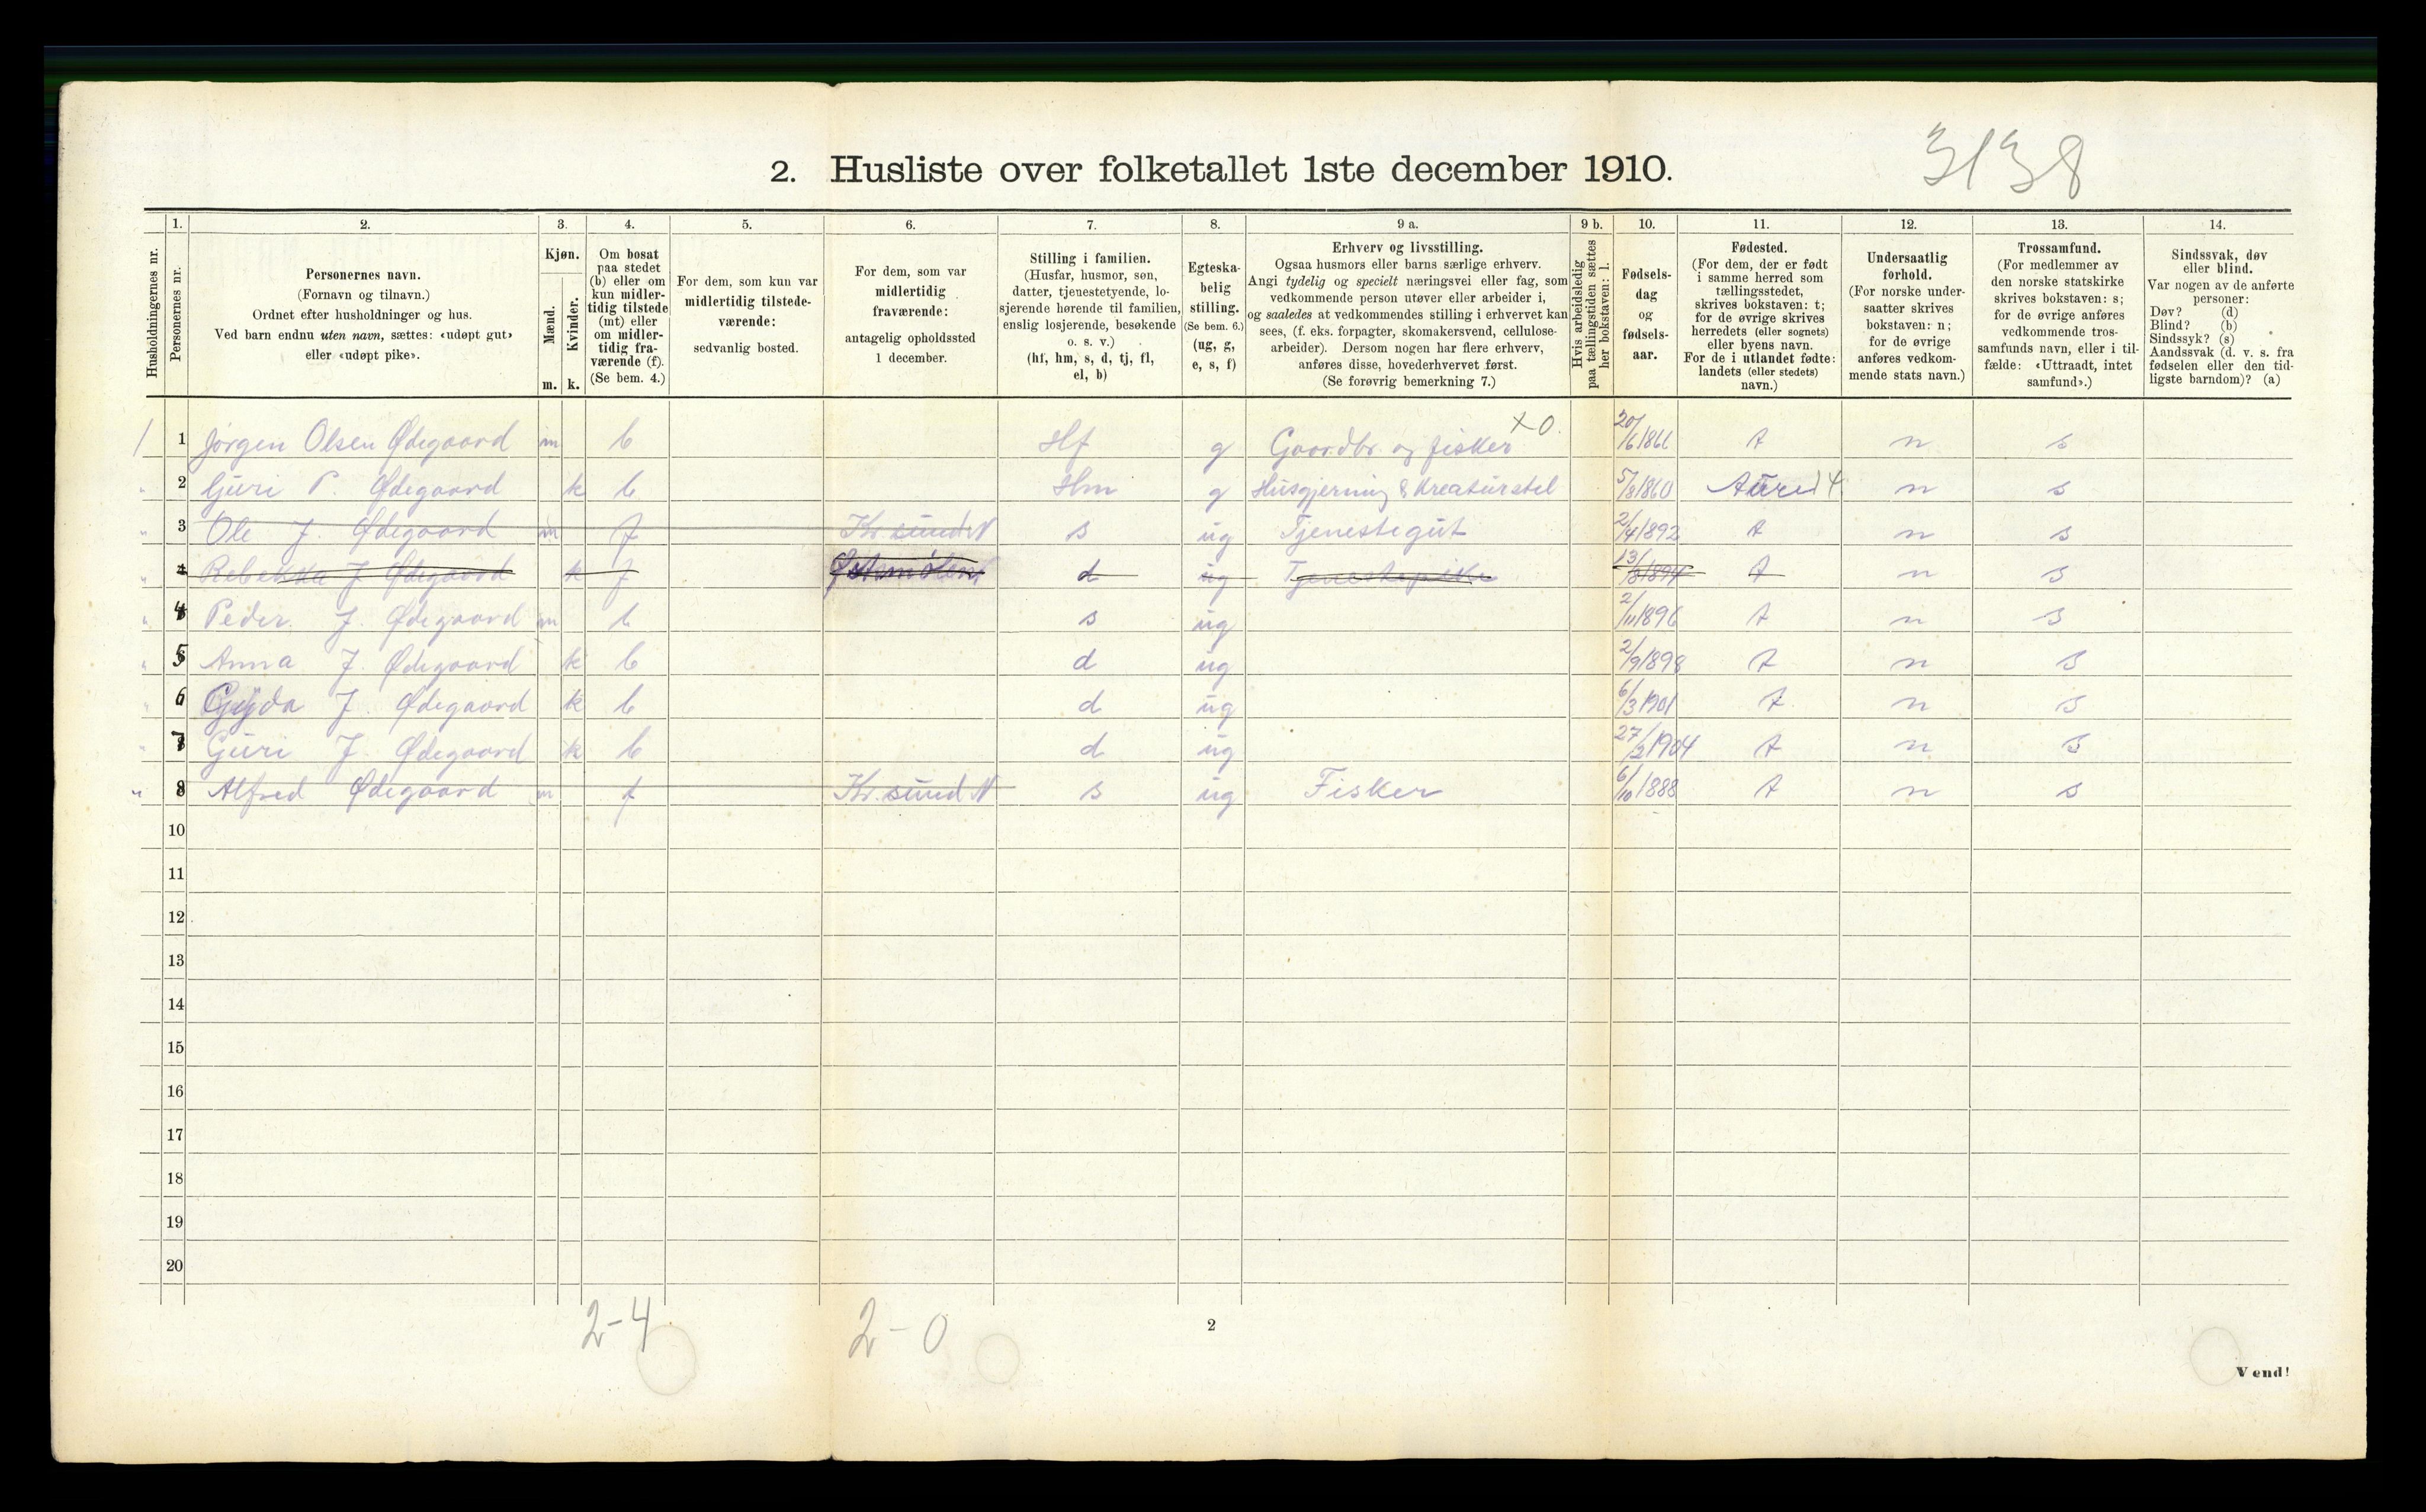 3138
2. Husliste over folketallet 1ste december 1910.
Husholdningernes nr.
1. Personernes nr.
2. Personernes navn.
(Fornavn og tilnavn.)
Ordnet efter husholdninger og hus.
Ved barn endnu uten navn, sættes: «udøpt gut»
eller «udøpt pike».
3. Kjøn.
Mænd. m.
Kvinder. k.
4. Om bosat
paa stedet
(b) eller om
kun midler-
tidig tilstede
(mt) eller
om midler-
tidig fra-
værende (f).
(Se bem. 4.)
5. For dem, som kun var
midlertidig tilstede-
værende:
sedvanlig bosted.
6. For dem, som var
midlertidig
fraværende:
antagelig opholdssted
1 december.
7. Stilling i familien.
(Husfar, husmor, søn,
datter, tjenestetyende, lo-
sjerende hørende til familien,
enslig losjerende, besøkende
o. s. v.)
(hf, hm, s, d, tj, fl,
el, b)
8. Egteska-
belig
stilling.
(Se bem. 6.)
(ug, g,
e, s, f)
9 a. Erhverv og livsstilling.
Ogsaa husmors eller barns særlige erhverv.
Angi tydelig og specielt næringsvei eller fag, som
vedkommende person utøver eller arbeider i,
og saaledes at vedkommendes stilling i erhvervet kan
sees, (f. eks. forpagter, skomakersvend, cellulose-
arbeider). Dersom nogen har flere erhverv,
anføres disse, hovederhvervet først.
(Se forøvrig bemerkning 7.)
9 b. Hvis arbeidsledig
paa tællingstiden sættes
her bokstaven: l.
10. Fødsels-
dag
og
fødsels-
aar.
11. Fødested.
(For dem, der er født
i samme herred som
tællingsstedet,
skrives bokstaven: t;
for de øvrige skrives
herredets (eller sognets)
eller byens navn.
For de i utlandet fødte:
landets (eller stedets)
navn.)
12. Undersaatlig
forhold.
(For norske under-
saatter skrives
bokstaven: n;
for de øvrige
anføres vedkom-
mende stats navn.)
13. Trossamfund.
(For medlemmer av
den norske statskirke
skrives bokstaven: s;
for de øvrige anføres
vedkommende tros-
samfunds navn, eller i til-
fælde: «Uttraadt, intet
samfund».)
14. Sindssvak, døv
eller blind.
Var nogen av de anførte
personer:
Døv? (d)
Blind? (b)
Sindssyk? (s)
Aandssvak (d. v. s. fra
fødselen eller den tid-
ligste barndom)? (a)
1 1 Jørgen Olsen Ødegaard m b Hf g Gaardbr. og fisker x0. 20/6 1866 t n s
" 2 Guri P. Ødegaard k b Hm g Husgjerning & Kreaturstel 5/8 1860 Aure 14 n s
" 3 Ole J. Ødegaard m f Kr.sund N s ug Tjenestegut 2/4 1892 t n s
" 4 Rebekka J Ødegaard k f d ug Tjenestepike 13/8 1894 t n s
" 4 Peder J. Ødegaard m b s ug 2/11 1896 t n s
" 5 Anna J. Ødegaard k b d ug 2/9 1898 t n s
" 6 J. Ødegaard k b d ug 6/3 1901 t n s
" 7 Guri J. Ødegaard k b d ug 27/2 1904 t n s
" 8 Alfred Ødegaard m f Kr.sund N s ug Fisker 6/10 1888 t n s
10
11
12
13
14
15
16
17
18
19
20
2-4 2-0
2
Vend!